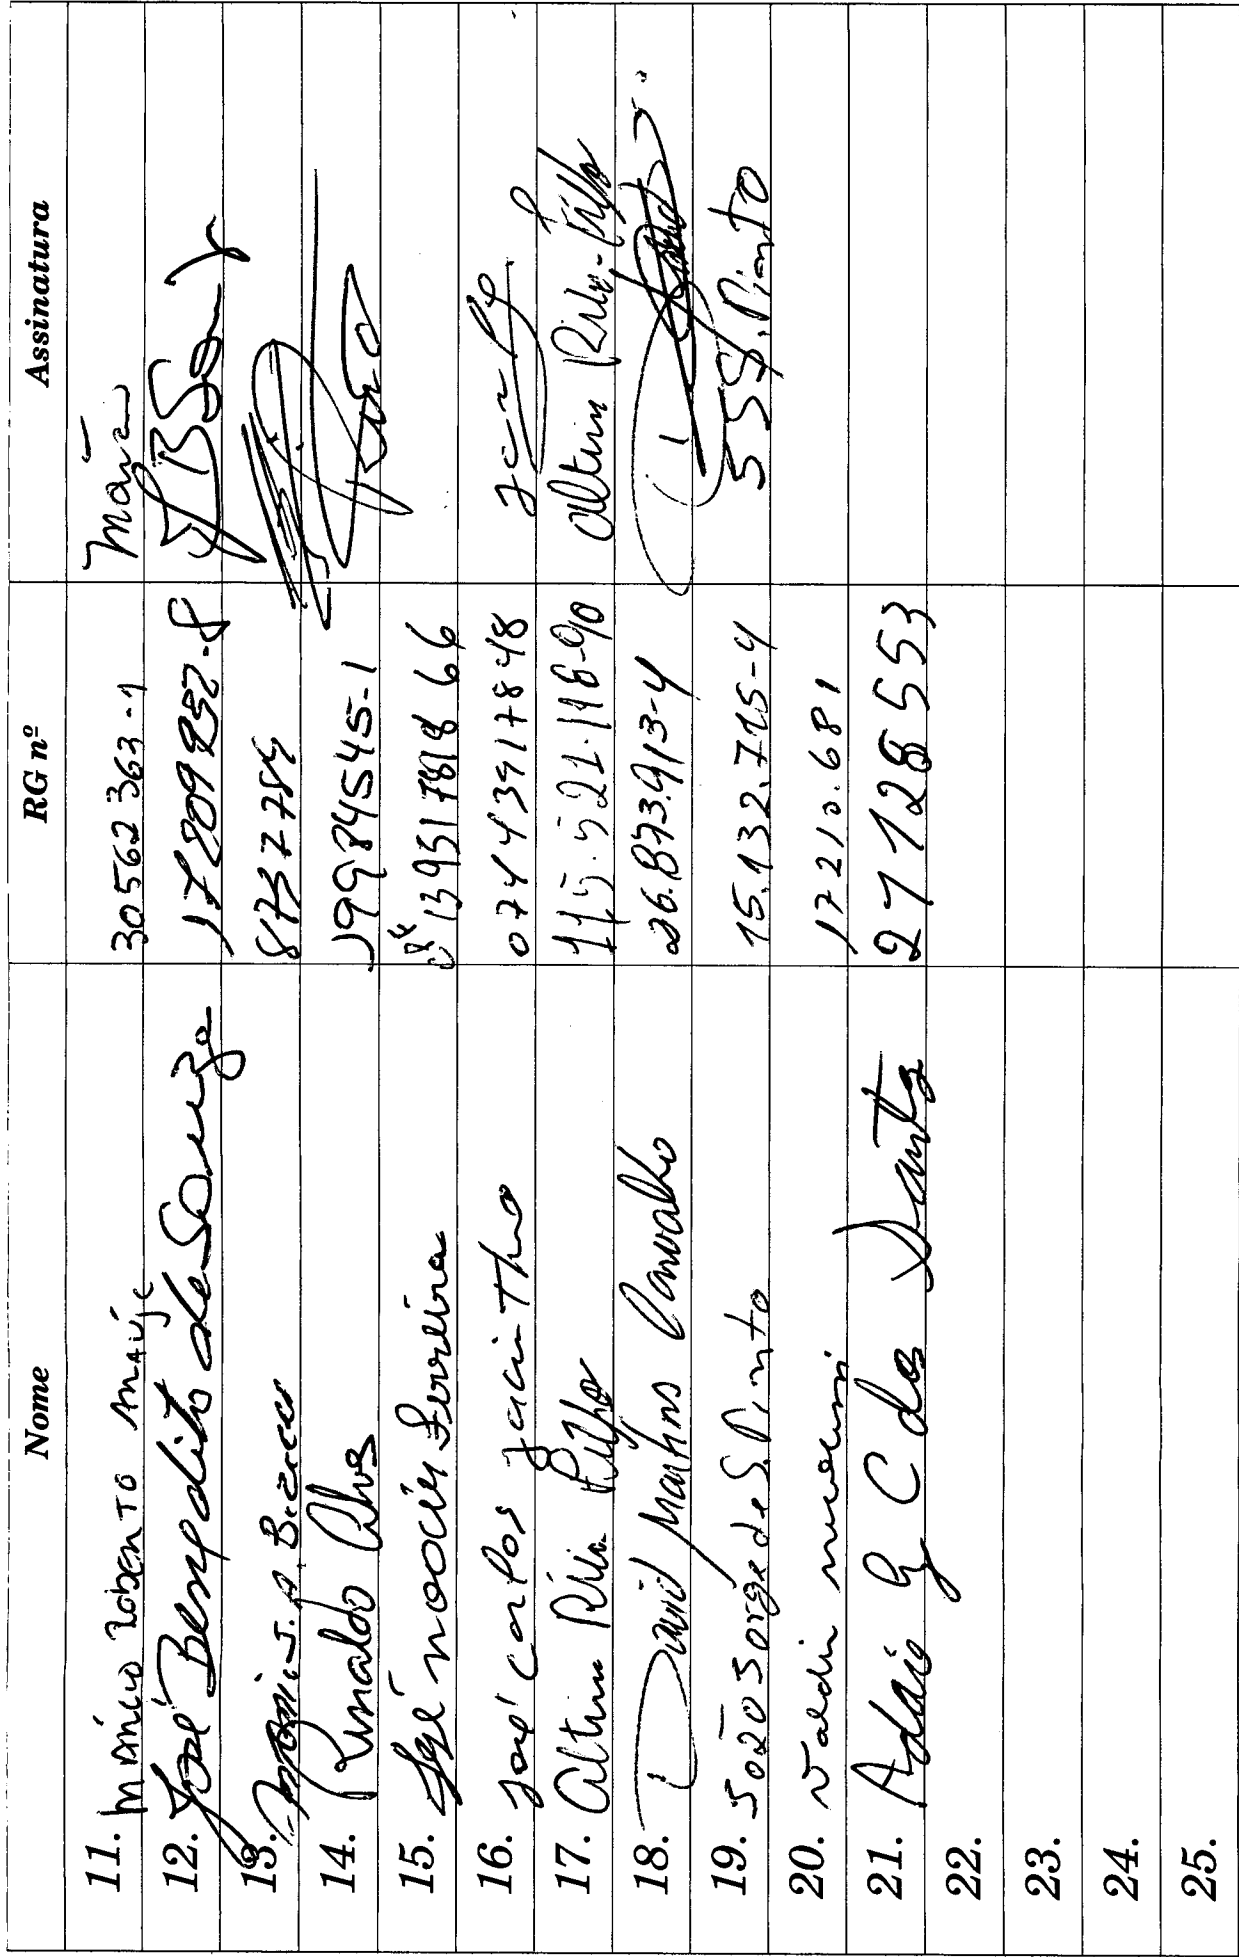 Nome RG nº Assinatura
11. Márcio Roberto Mauje 30562363-1 Márcio
12. José Benedito de Souza 17809252-8 JBSouz
13. 8737789
14. Rinaldo Alves 19984545-1
15. José moacir Ferreira 1395178 66
16. José Carlos Jacintho 07443917848
17. Altim Filho 115.521.116-90 Altim Filho
18. David Martins Carvalho 26.873.913-4
19. João Jorge de S. Pinto 15.132.715-4 JJS.Pinto
20. Valdir 17210.681
21. Adão G C dos Santos 27128553
22.
23.
24.
25.